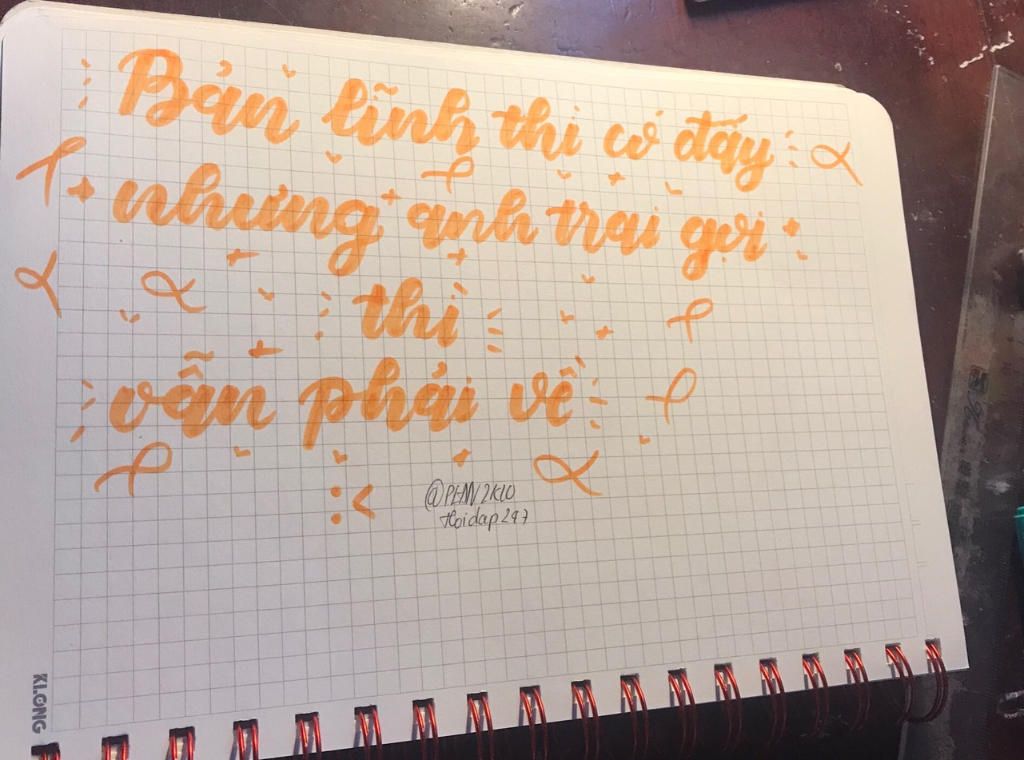 Bản lĩnh thì có đấy
nhưng anh trai gọi
thì
vẫn phải về
:<
Hoidap247
KLONG